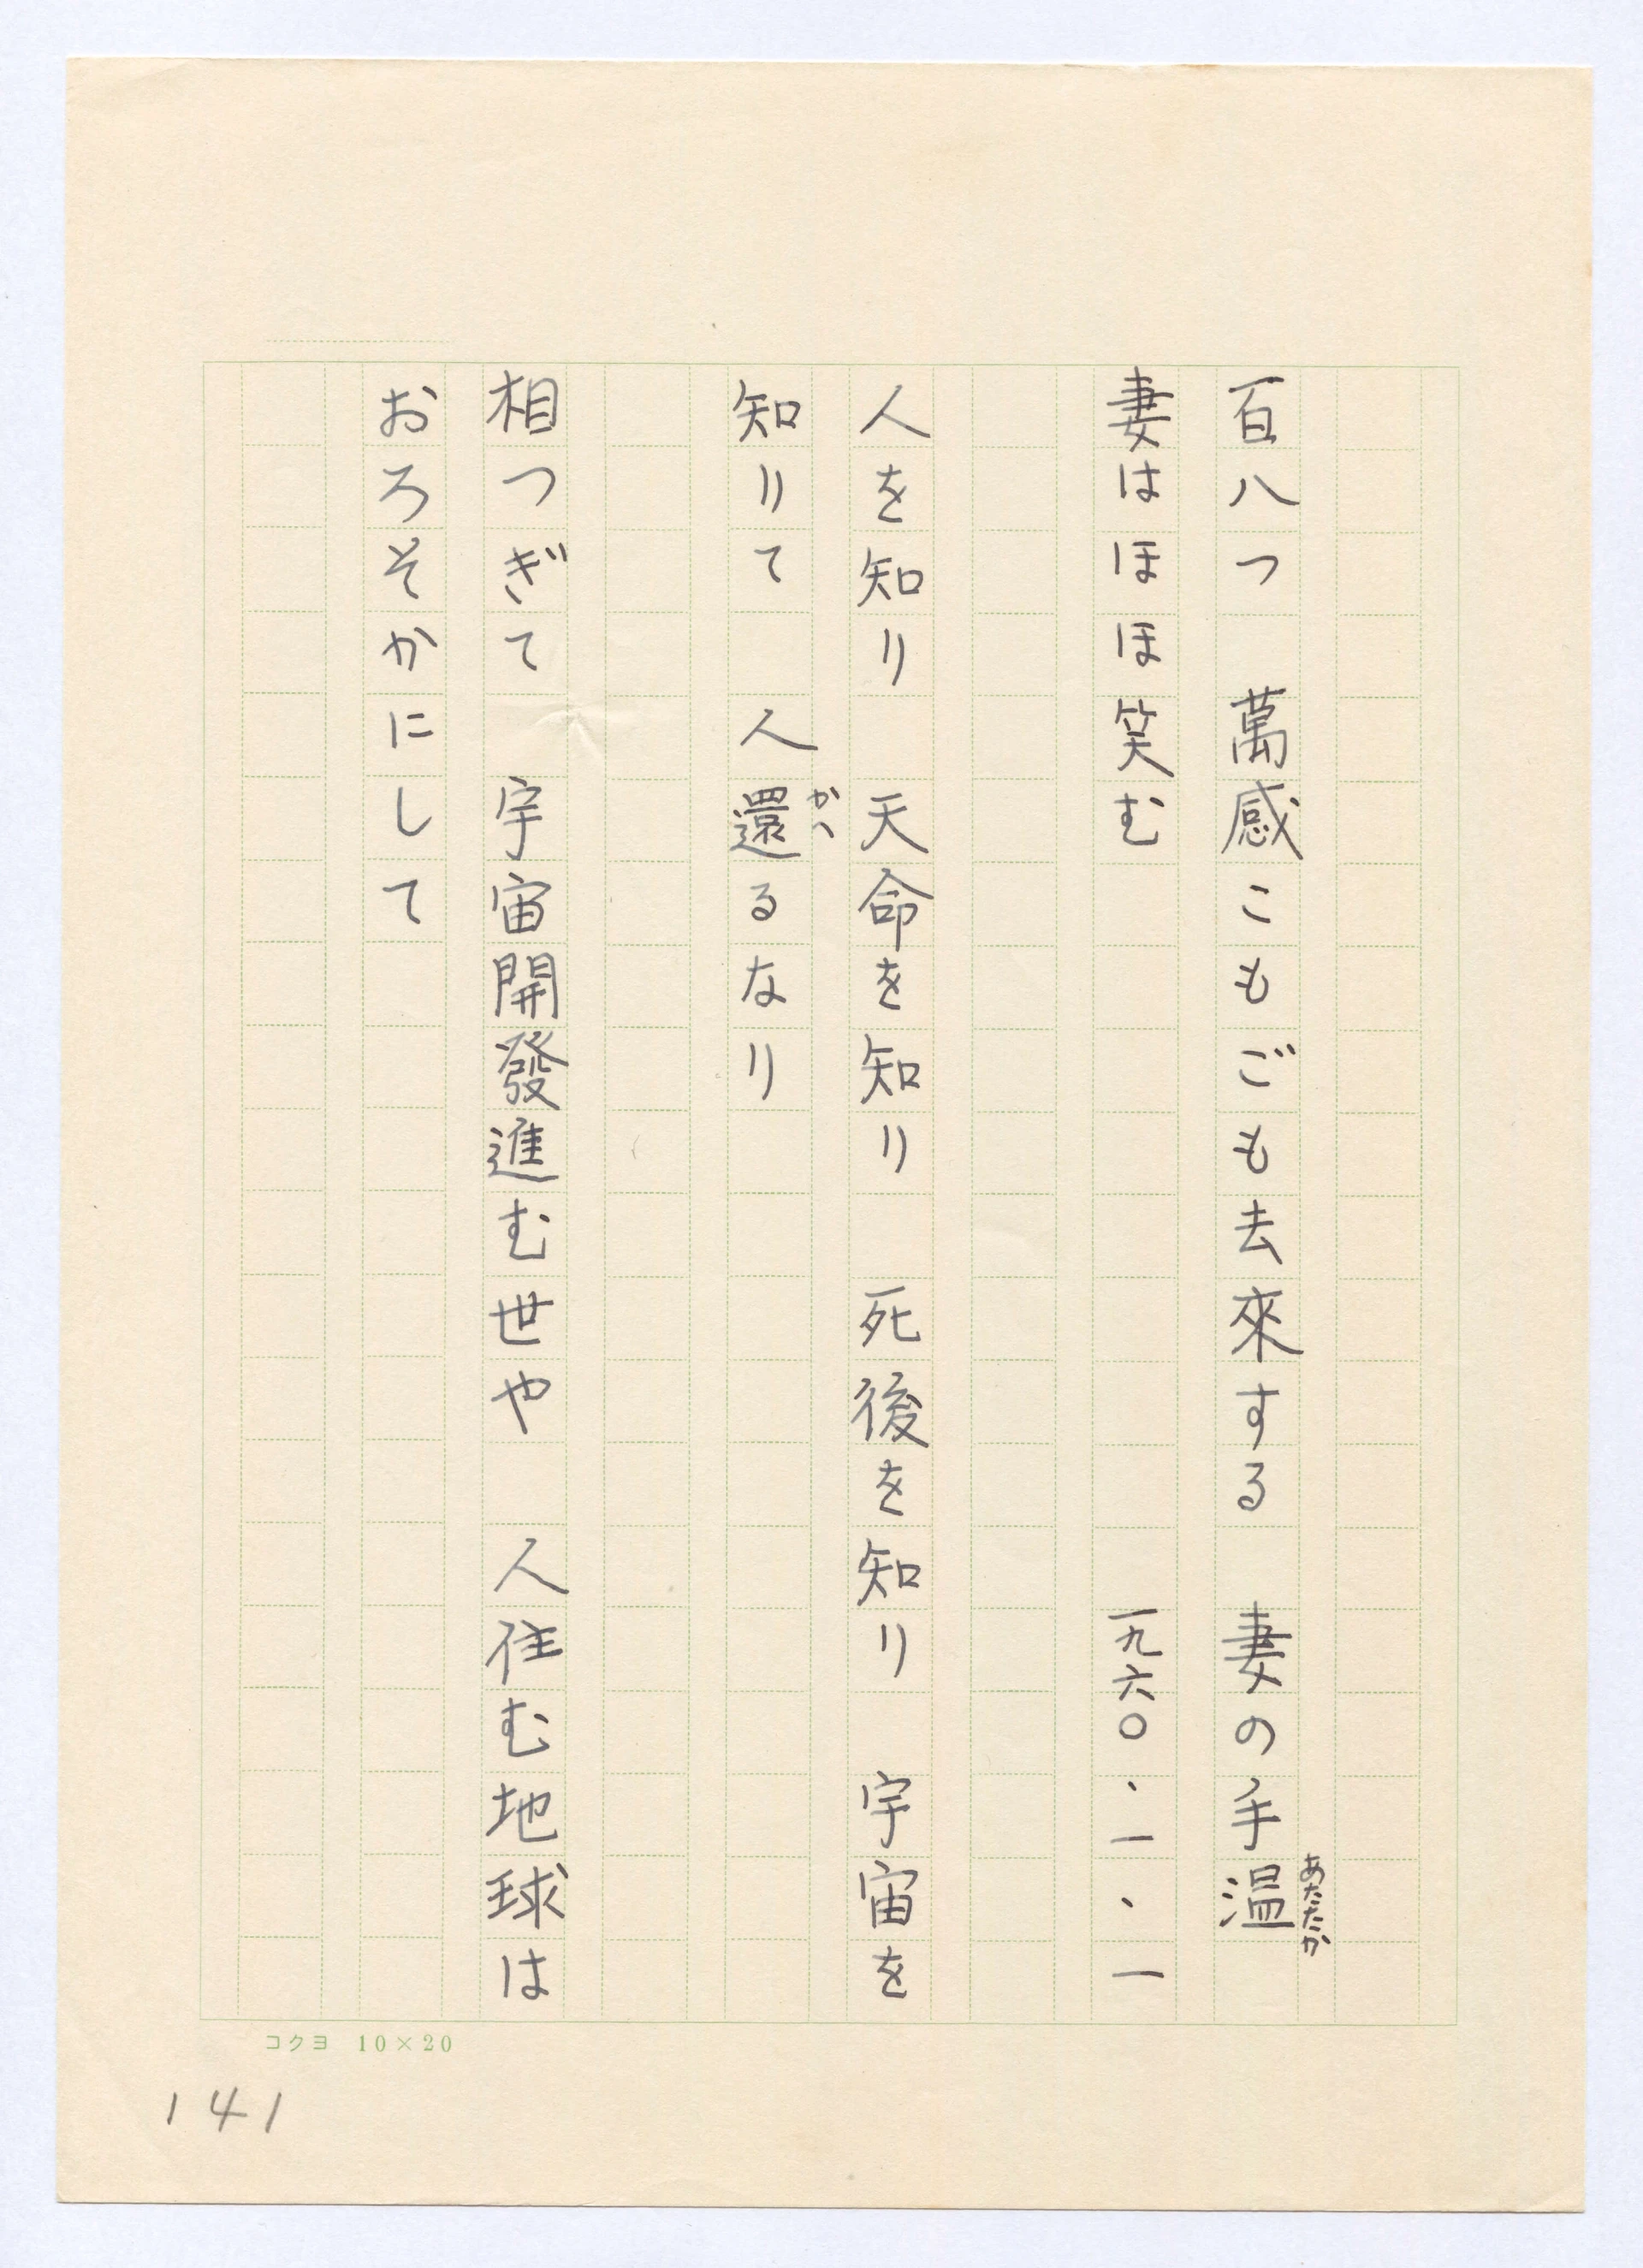 百八つ　萬感こもごも去來する　妻の手温
あたたか
妻はほほ笑む　一九六〇・一・一
人を知り　天命を知り　死後を知り　宇宙を
知りて　人還るなり
かへ
相つぎて　宇宙開發進む世や　人住む地球は
おろそかにして
コクヨ 10×20
141